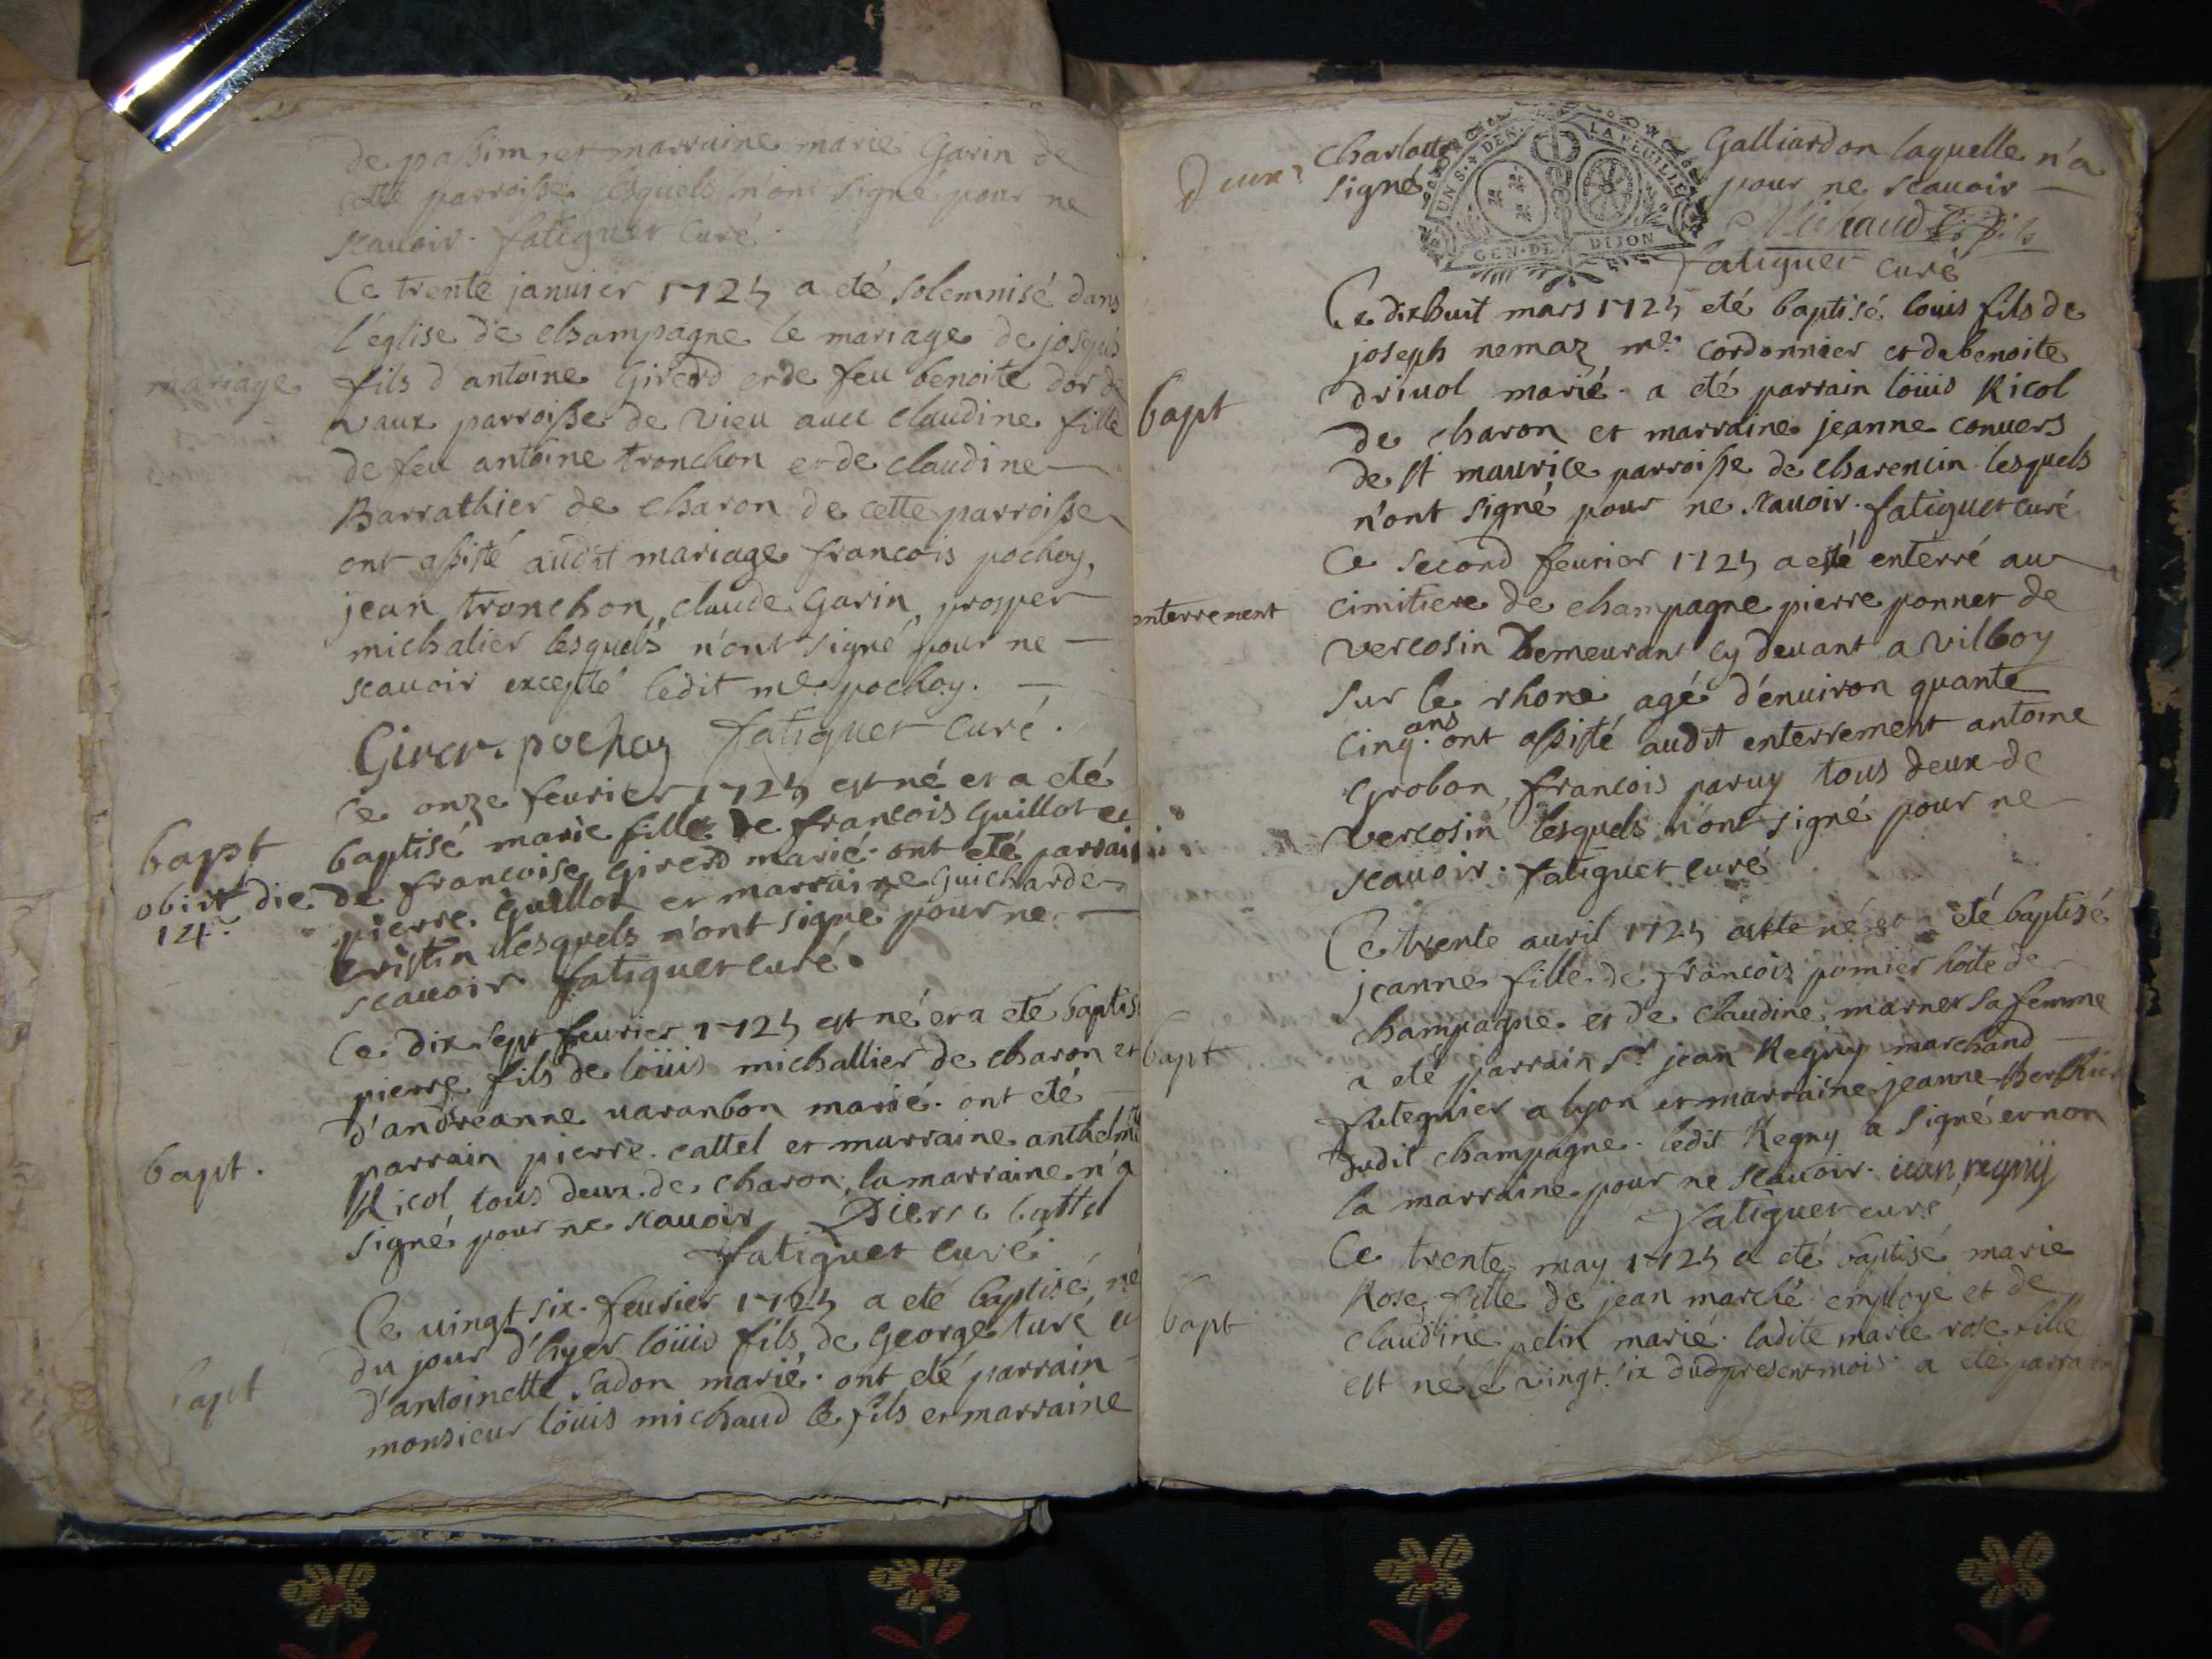 de passim, et marraine marie Garin de
cette parroisse lesquels n'ont signé pour ne
scauoir. fatiguet Curé.
mariage
Ce trente januier 1725 a eté solemnisé dans
l'église de champagne le mariage de joseph
fils d antoine Girerd et de feu benoite dor de
vaux parroisse de vieu auec claudine fille
de feu antoine tronchon et de claudine
Barrathier de charon de cette parroisse
ont assisté audit mariage francois pochoy,
jean tronchon, claude Garin, prosper
michalier lesquels n'ont signé pour ne
scauoir excepté ledit me. pochoy.
Girer. pochoy fatiguet Curé.
bapt
obiit die
14a
Ce onze feurier 1725 est né et a eté
baptisé marie fille de francois Guillot et
de francoise Girerd marié. ont eté parrain
pierre Guillot et marraine Guicharde
Cristin lesquels n'ont signé pour ne
scauoir fatiguet curé.
bapt.
Ce dix sept feurier 1725 est né et a eté baptisé
pierre fils de löuis michallier de charon et
d'andréanne varanbon marié. ont eté
parrain pierre. cattel et marraine anthelme
Ricol tous deux de charon, la marraine n'a
signé pour ne scauoir Pierre Cattel
fatiguet curé.
bapt
Ce uingt six. feurier 1725 a eté baptisé, né
du jour d'hyer löuis fils de George turé et
d'antoinette Sadon marié. ont eté parrain
monsieur löuis michaud le fils et marraine
deux
Charlotte Galliardon laquelle n'a
signé pour ne scauoir
UN S. 4 DEN. LA FEUILLE
GEN. DE DIJON
Michaud
fatiguet curé
bapt
Ce dixhuit mars 1725 eté baptisé louis fils de
joseph nemaz me. cordonnier et de benoite
driuol marié. a eté parrain löuis Ricol
de charon et marraine jeanne conuers
de st maurice parroisse de charencin lesquels
n'ont signé pour ne scauoir. fatiguet curé
enterrement
Ce second feurier 1725 a esté enterré au
cimitiere de champagne pierre ponnet de
vercosin demeurant cy deuant a vilboy
sur le rhone agé d'énuiron quante
cinq ans. ont assisté audit enterrement antoine
Grobon, francois paruy tous deux de
vercosin lesquels n'ont signé pour ne
scauoir. fatiguet curé
bapt
Ce trente auril 1725 né et a eté baptisé
jeanne fille de francois pomier hôte de
champagne. et de claudine marnet sa femme
a eté parrain sr jean Regny marchand
a lyon et marraine jeanne
dudit champagne. ledit Regny a signé et non
la marraine pour ne scauoir. iean regnij
fatiguet curé
bapt
Ce trente may 1725 a eté baptisé marie
Rose fille de jean marché employé et de
claudine pelin marié. ladite marie rose fille
est né le vingt six du present mois. a eté parrain